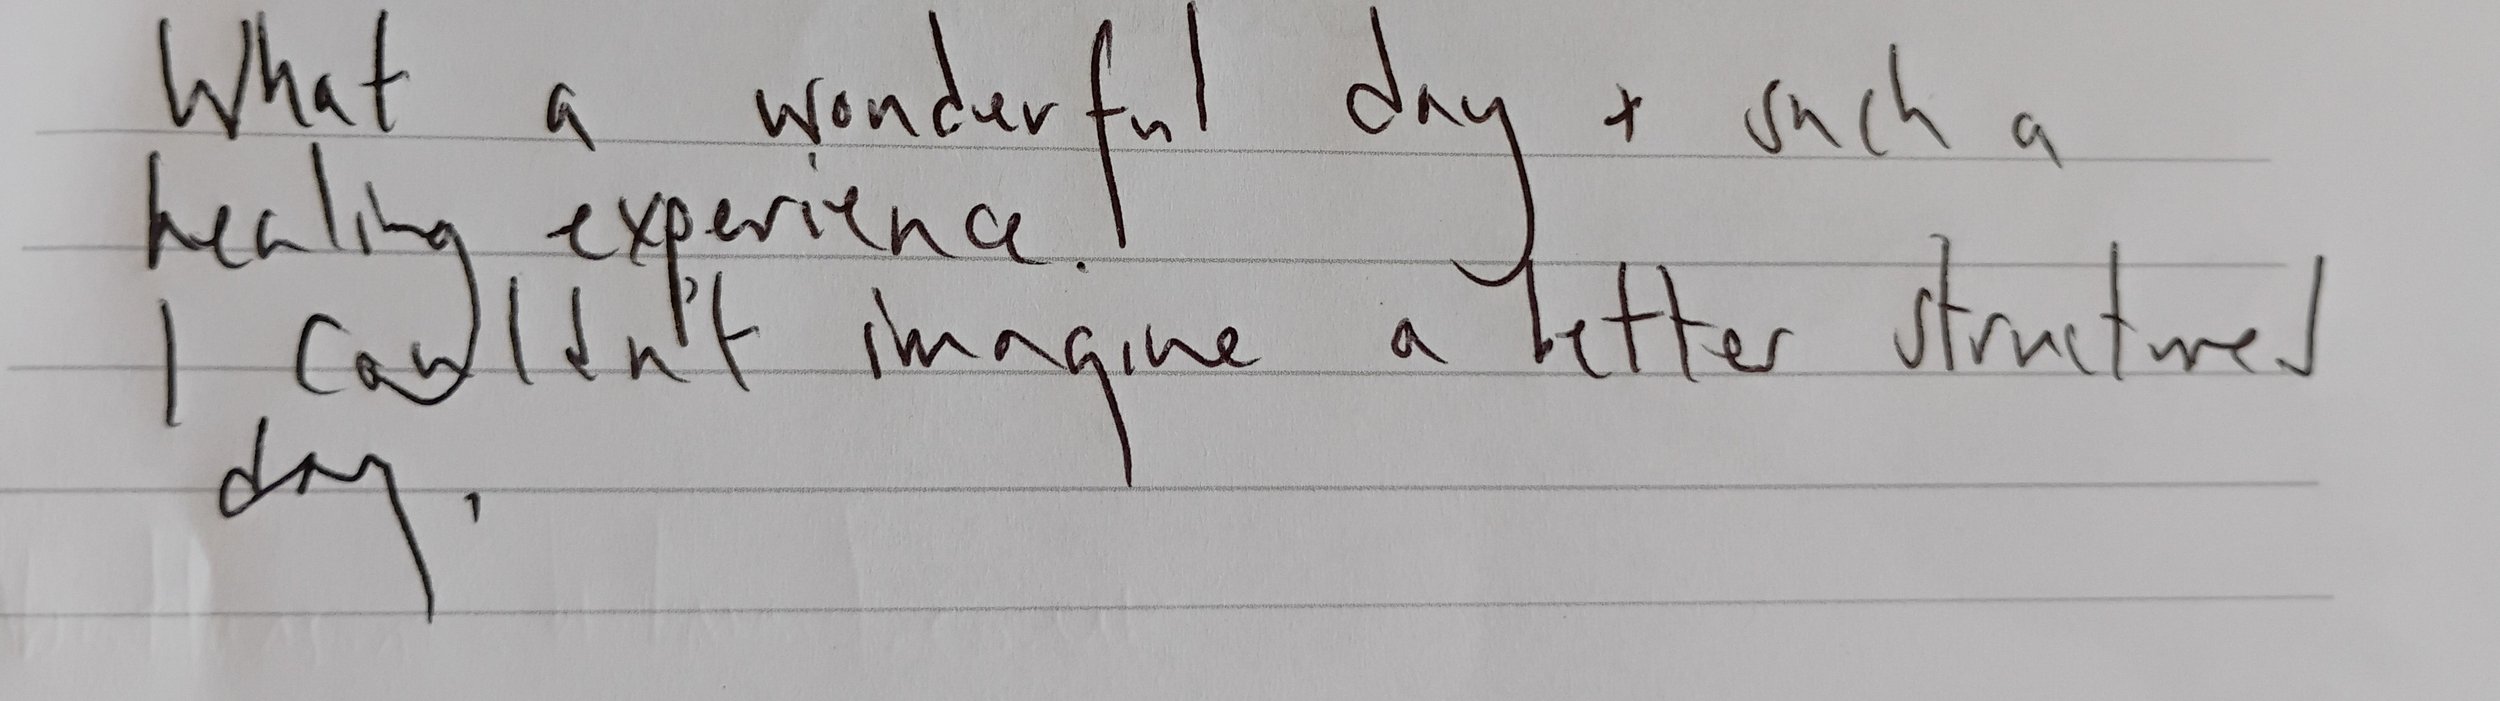 What a wonderful day + such a
healing experience.
I couldn't imagine a better structured
day.